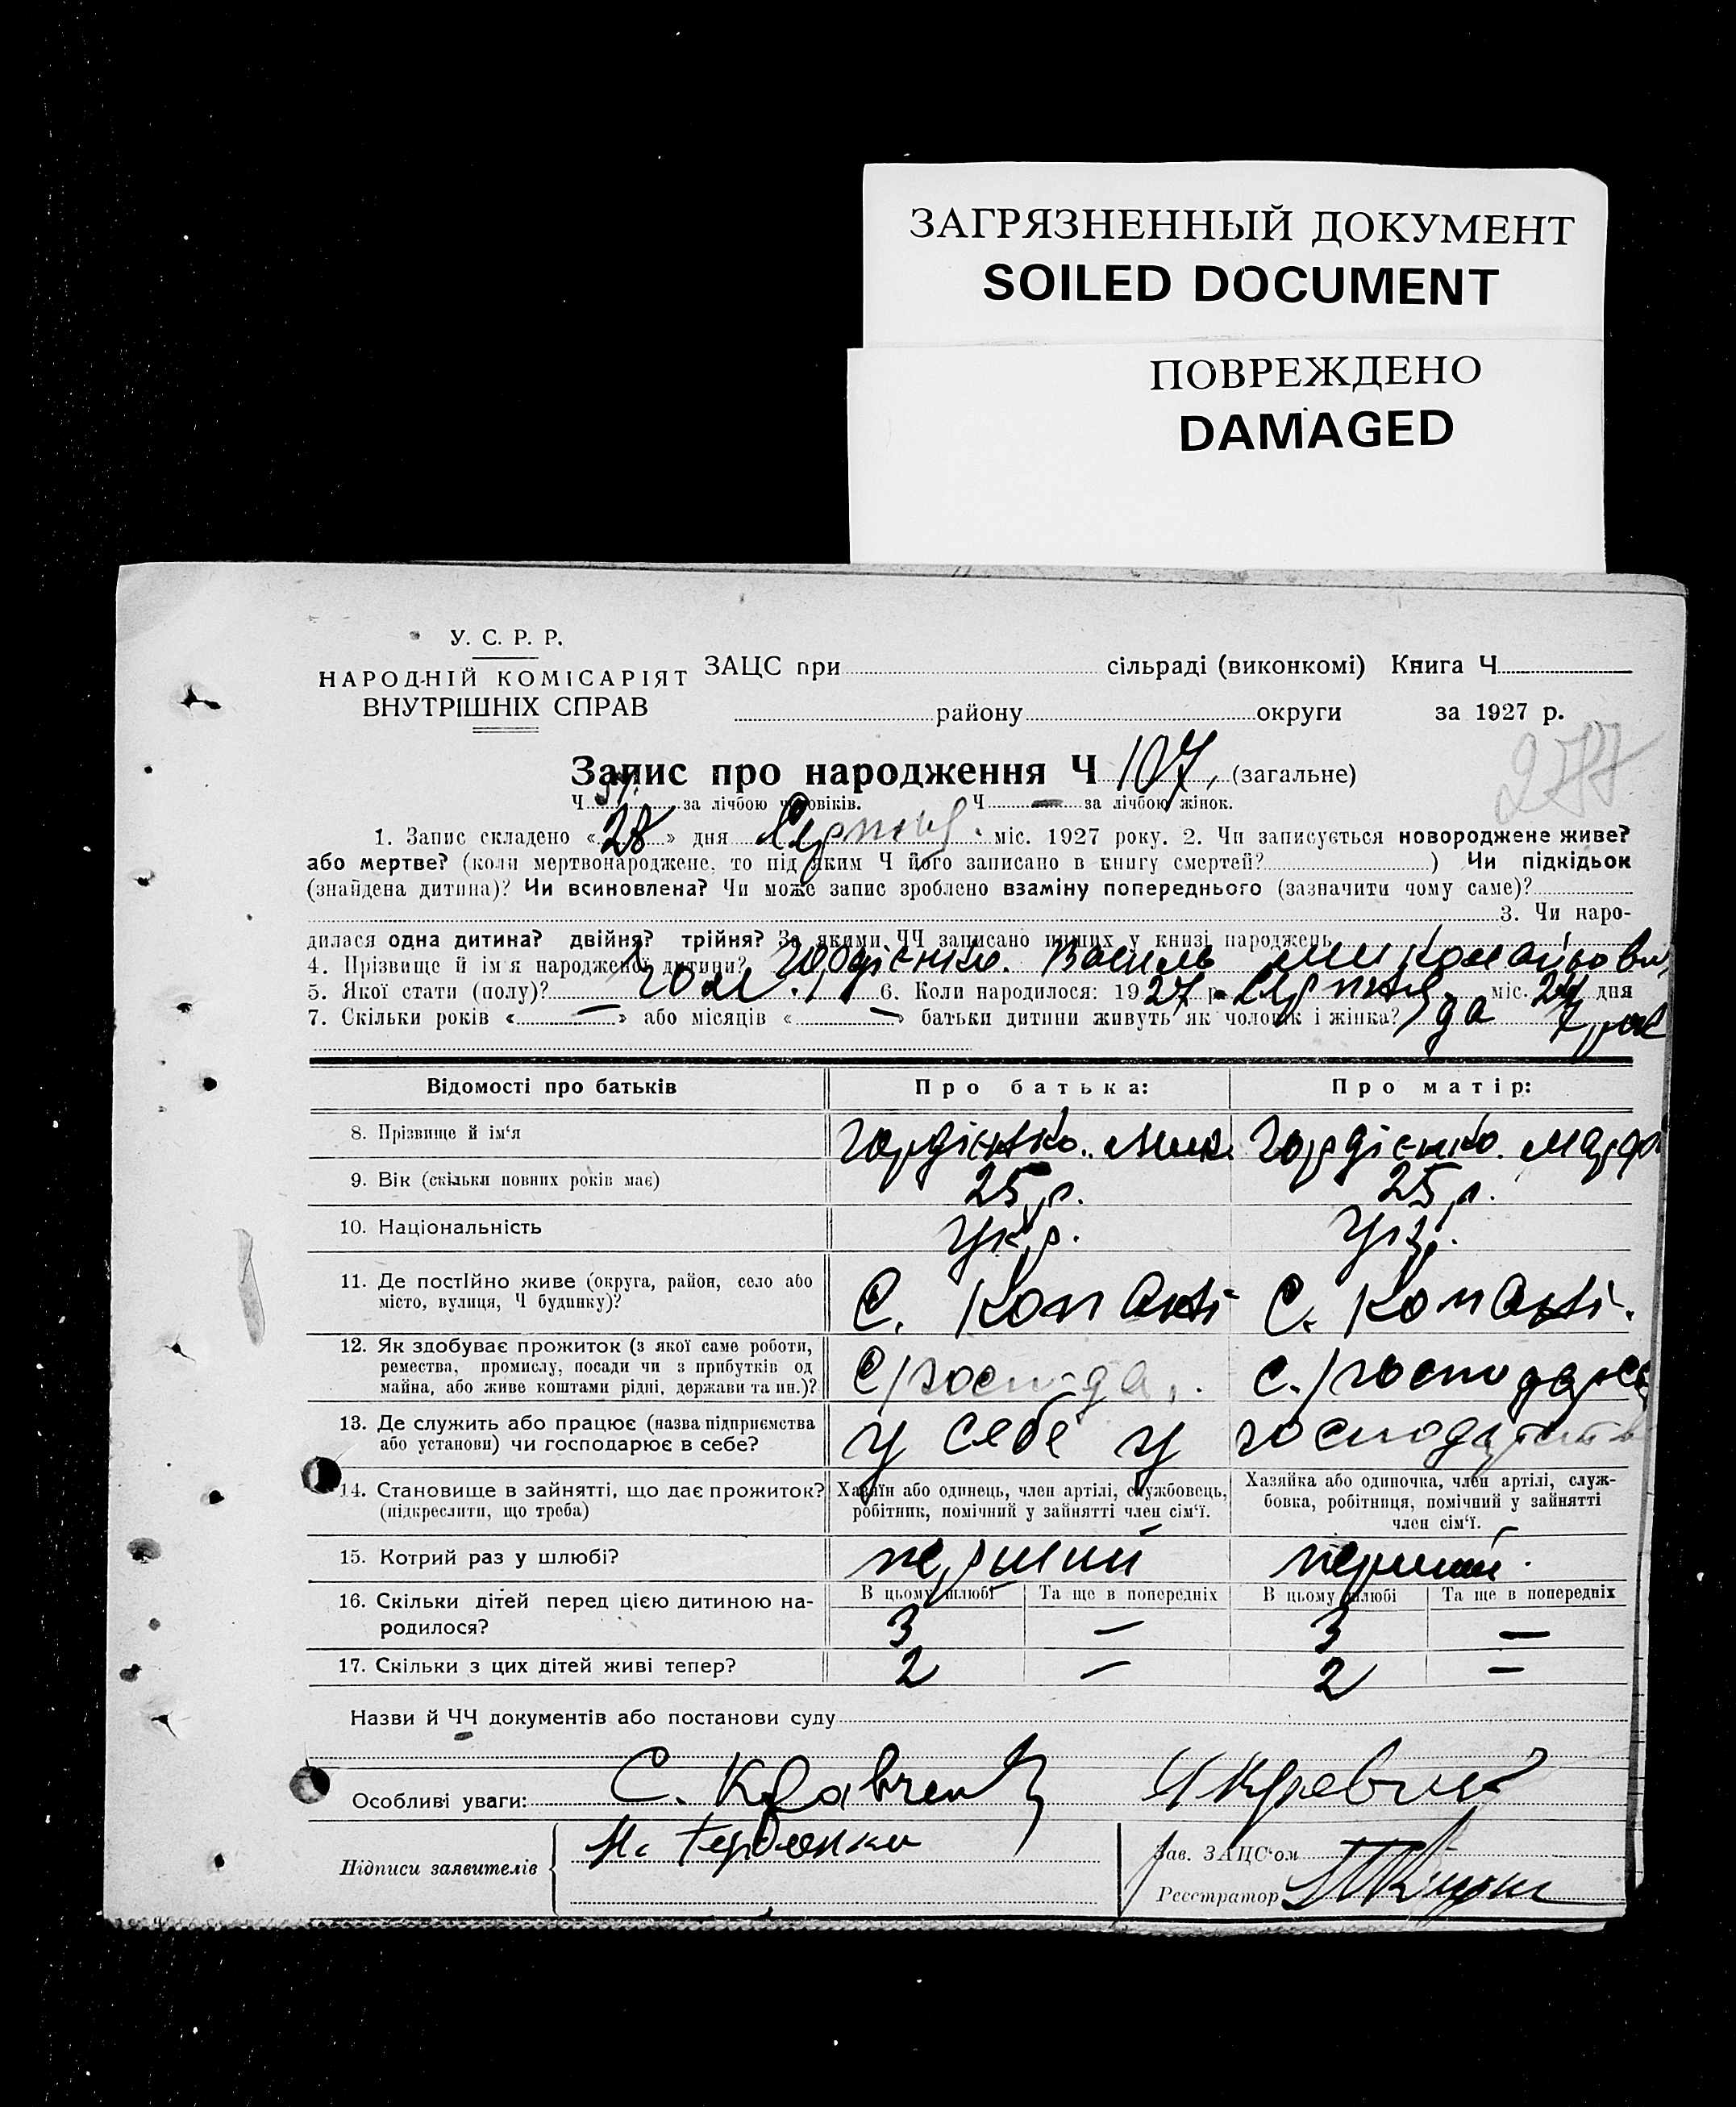 ЗАГРЯЗНЕННЫЙ ДОКУМЕНТ
SOILED DOCUMENT
ПОВРЕЖДЕНО
DAMAGED
У. С. Р. Р.
НАРОДНІЙ КОМІСАРІЯТ
ВНУТРІШНІХ СПРАВ
ЗАЦС при сільраді (виконкомі) Книга Ч
району округи за 1927 р.
277
Запис про народження Ч 107, (загальне)
Ч 57. за лічбою чоловіків. Ч — за лічбою жінок.
1. Запис складено «28» дня Серпня міс. 1927 року. 2. Чи записується новороджене живе?
або мертве? (коли мертвонароджене, то під яким Ч його записано в книгу смертей? ) Чи підкідьок
(знайдена дитина)? Чи всиновлена? Чи може запис зроблено взаміну попереднього (зазначити чому саме)?
3. Чи наро-
дилася одна дитина? двійня? трійня? За якими ЧЧ записано инших у книзі народжень
4. Прізвище й ім'я народженої дитини? Гордієнко. Василь Миколайович
5. Якої стати (полу)? чол. 6. Коли народилося: 1927 р. Серпня міс. 24 дня
7. Скільки років « — » або місяців « — » батьки дитини живуть як чоловік і жінка? да 7 рок
Відомості про батьків Про батька: Про матір:
8. Прізвище й ім'я Гордієнко. Мик. Гордієнко. Марфа
9. Вік (скільки повних років має) 25 р. 25 р.
10. Національність Укр. Укр.
11. Де постійно живе (округа, район, село або
місто, вулиця, Ч будинку)? С. Компанії С. Компанії.
12. Як здобуває прожиток (з якої саме роботи,
ремества, промислу, посади чи з прибутків од
майна, або живе коштами рідні, держави та ин.)? С/господар. С./господарст
13. Де служить або працює (назва підприємства
або установи) чи господарює в себе? у себе у господарств
14. Становище в зайнятті, що дає прожиток?
(підкреслити, що треба)
Хазяїн або одинець, член артілі, службовець,
робітник, помічний у зайнятті член сім'ї.
Хазяйка або одиночка, член артілі, служ-
бовка, робітниця, помічний у зайнятті
член сім'ї.
15. Котрий раз у шлюбі? перший перший.
В цьому шлюбі Та ще в попередніх В цьому шлюбі Та ще в попередніх
16. Скільки дітей перед цією дитиною на-
родилося? 3 — 3 —
17. Скільки з цих дітей живі тепер? 2 — 2 —
Назви й ЧЧ документів або постанови суду
Особливі уваги: С. Кравчен
Підписи заявителів
Зав. ЗАЦС'ом
Реєстратор